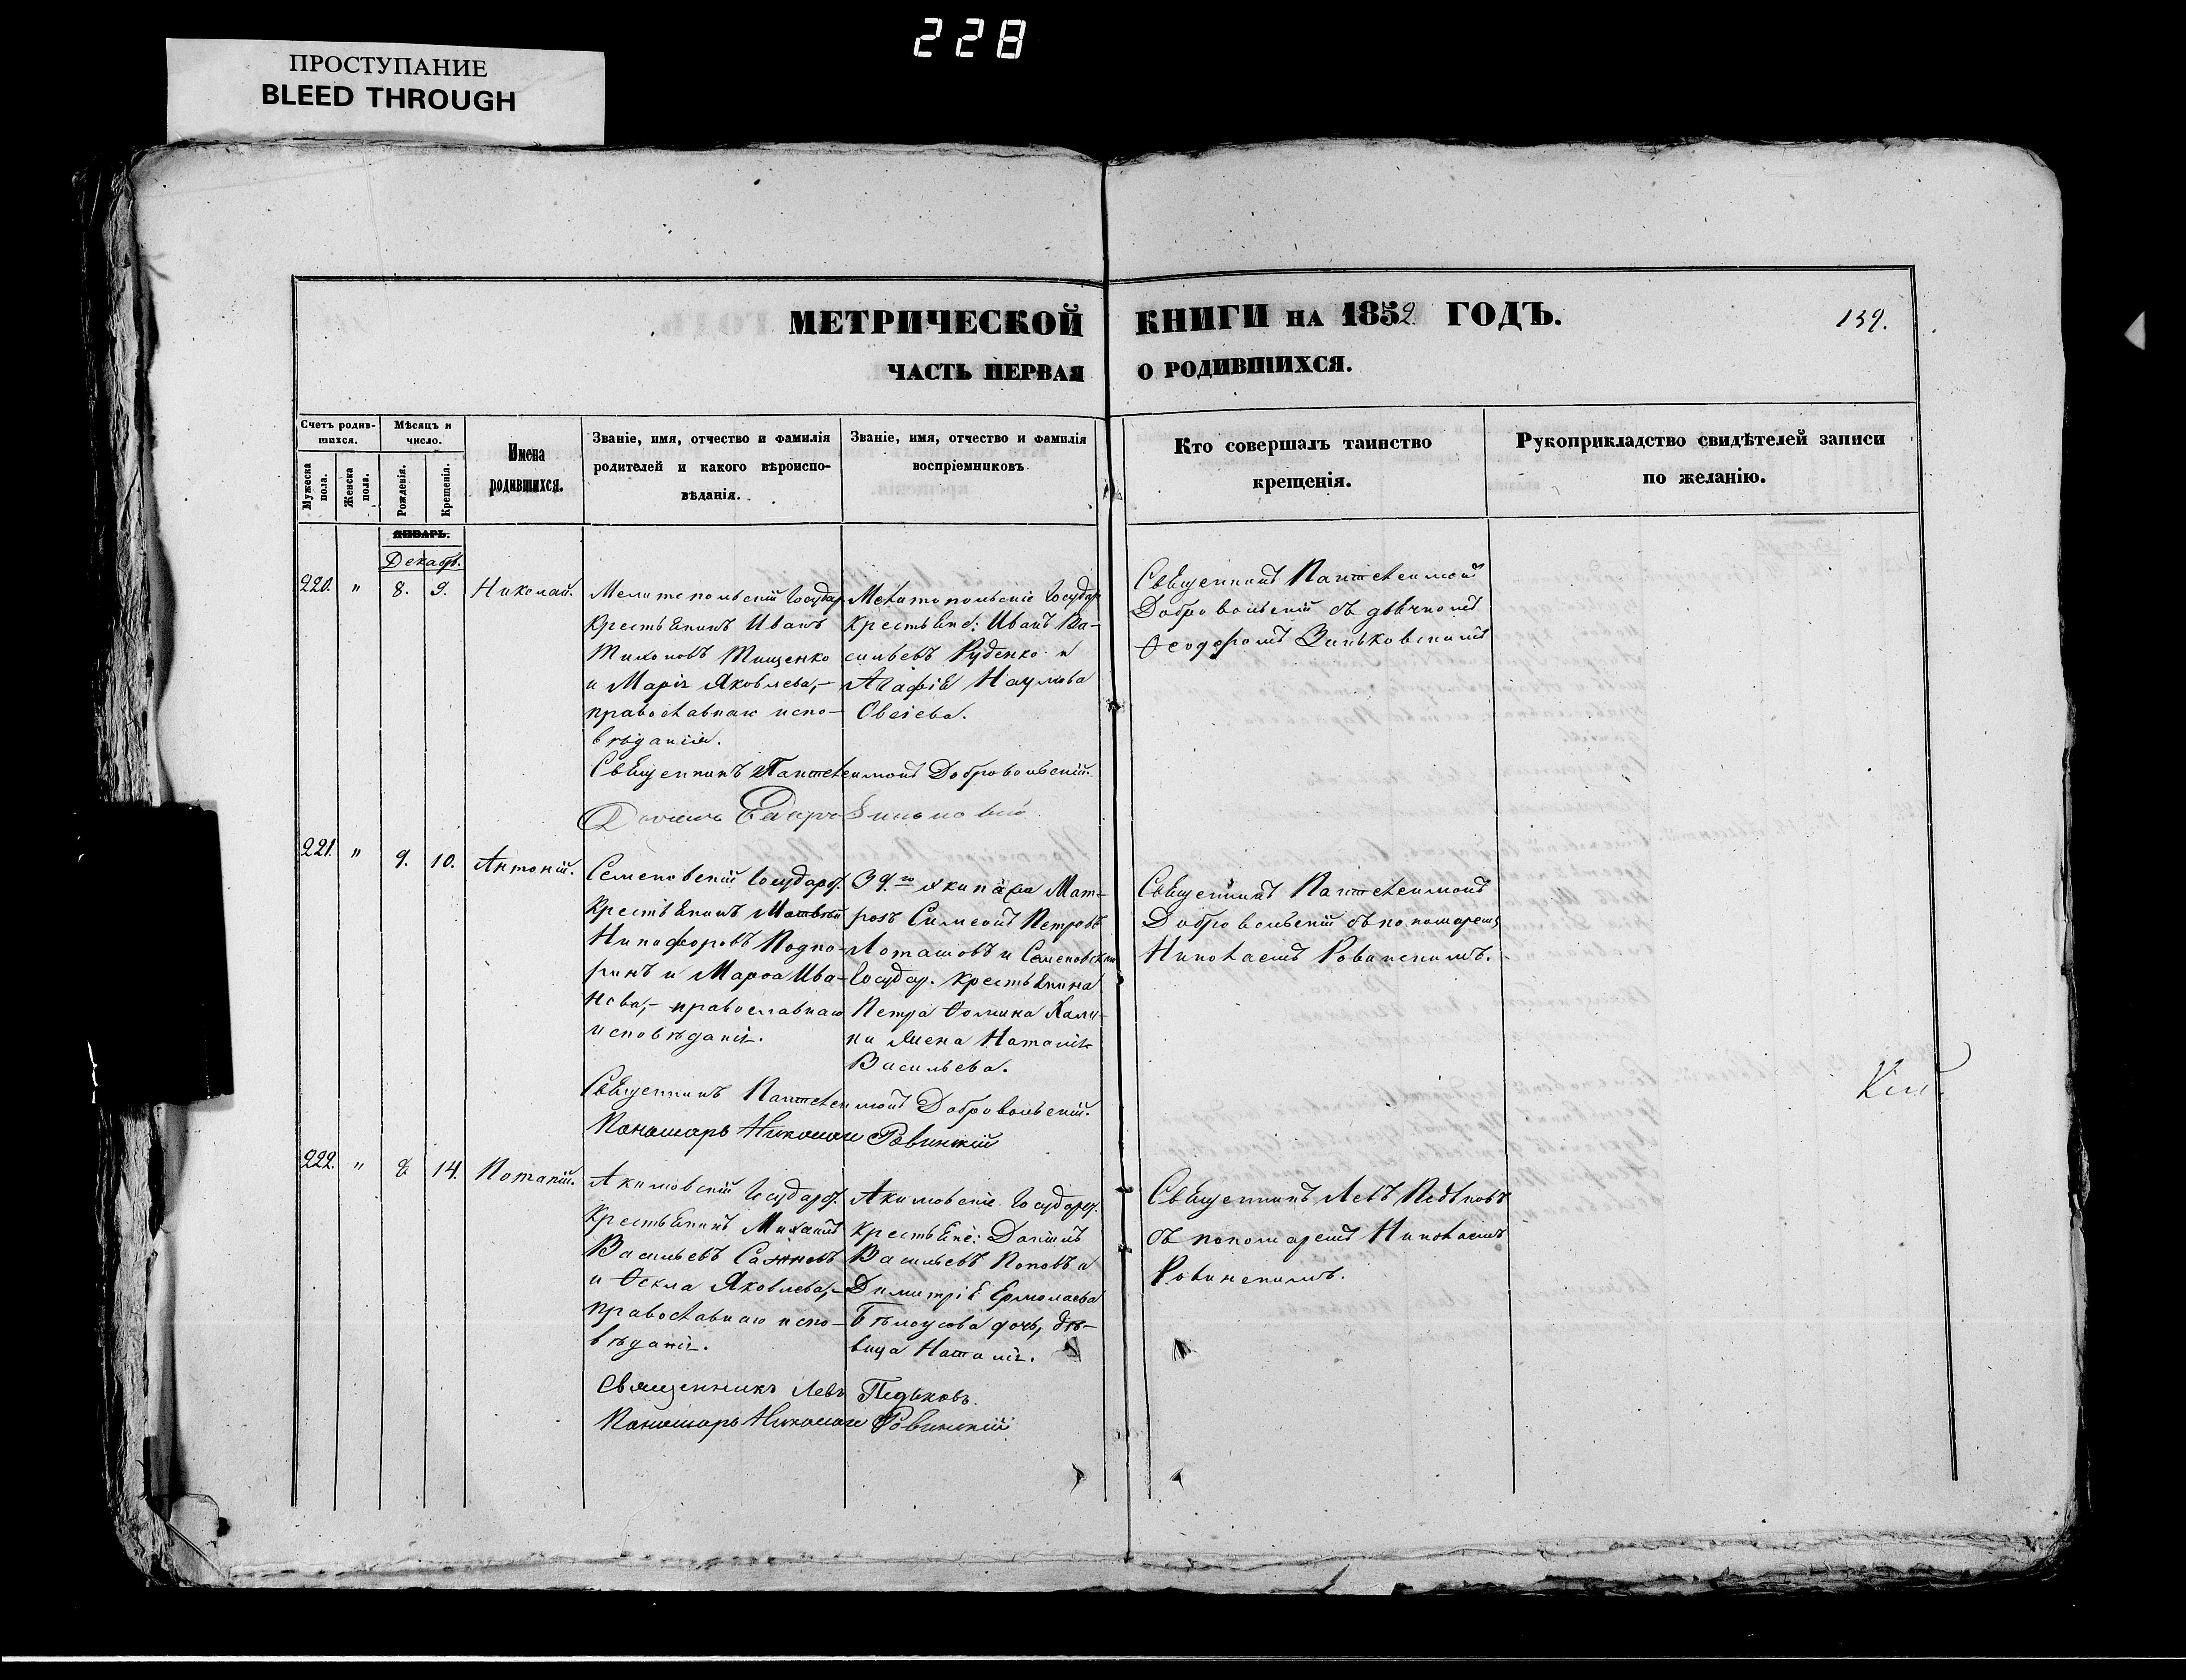 228
ПРОСТУПАНИЕ
BLEED THROUGH
МЕТРИЧЕСКОЙ КНИГИ НА 1852 ГОДЪ.
139.
ЧАСТЬ ПЕРВАЯ О РОДИВШИХСЯ.
Счетъ родив-
шихся.
Мужеска пола.
Женска пола.
Мѣсяцъ и
число.
Рожденія.
Крещенія.
Имена
родившихся.
Званіе, имя, отчество и фамилія
родителей и какого вѣроиспо-
вѣданія.
Званіе, имя, отчество и фамилія
воспріемниковъ
Кто совершалъ таинство
крещенія.
Рукоприкладство свидѣтелей записи
по желанію.
ЯНВАРЬ.
Декабр.
220. " 8. 9. Николай.
Мелитопольскій Государ.
крестьянинъ Иванъ
Тихоновъ Тищенко
и Марія Яковлева,-
православнаго испо-
вѣданія.
Мелитопольскіе Государ
крестьяне: Иванъ Ва-
сильевъ Руденко и
Агафія Наумова
Священникъ Пантелеимонъ
Добровольскій съ дьячкомъ
Ѳеодоромъ Зиньковскимъ
Священникъ Пантелеимонъ Добровольскій.
221. " 9. 10. Антоній.
Семеновскій Государ.
крестьянинъ Матвѣй
Никифоровъ Подко-
ринъ и Марѳа Ива-
нова,- православнаго
исповѣданія.
39.го экипажа Мат-
розъ Симеонъ Петровъ
Лоташовъ и Семеновскаго
Государ. крестьянина
Петра Ѳомина Кали-
на жена Наталія
Васильева.
Священникъ Пантелеимонъ
Добровольскій съ пономаремъ
Николаемъ Ровинскимъ.
Священникъ Пантелеимонъ Добровольскій.
Пономарь Николай Ровинскій
222. " 8 14. Потапій.
Акимовскій Государ.
крестьянинъ Михаилъ
Васильевъ Сазновъ
и Ѳекла Яковлева,-
православнаго испо-
вѣданія.
Акимовскіе Государ.
крестьяне: Даніилъ
Васильевъ Поповъ и
Димитрія Ермолаева
Бѣлоусова дочь, дѣ-
вица Наталія.
Священникъ Левъ Педьковъ
съ пономаремъ Николаемъ
Ровинскимъ.
Священникъ Левъ Педьковъ.
Пономарь Николай Ровинскій